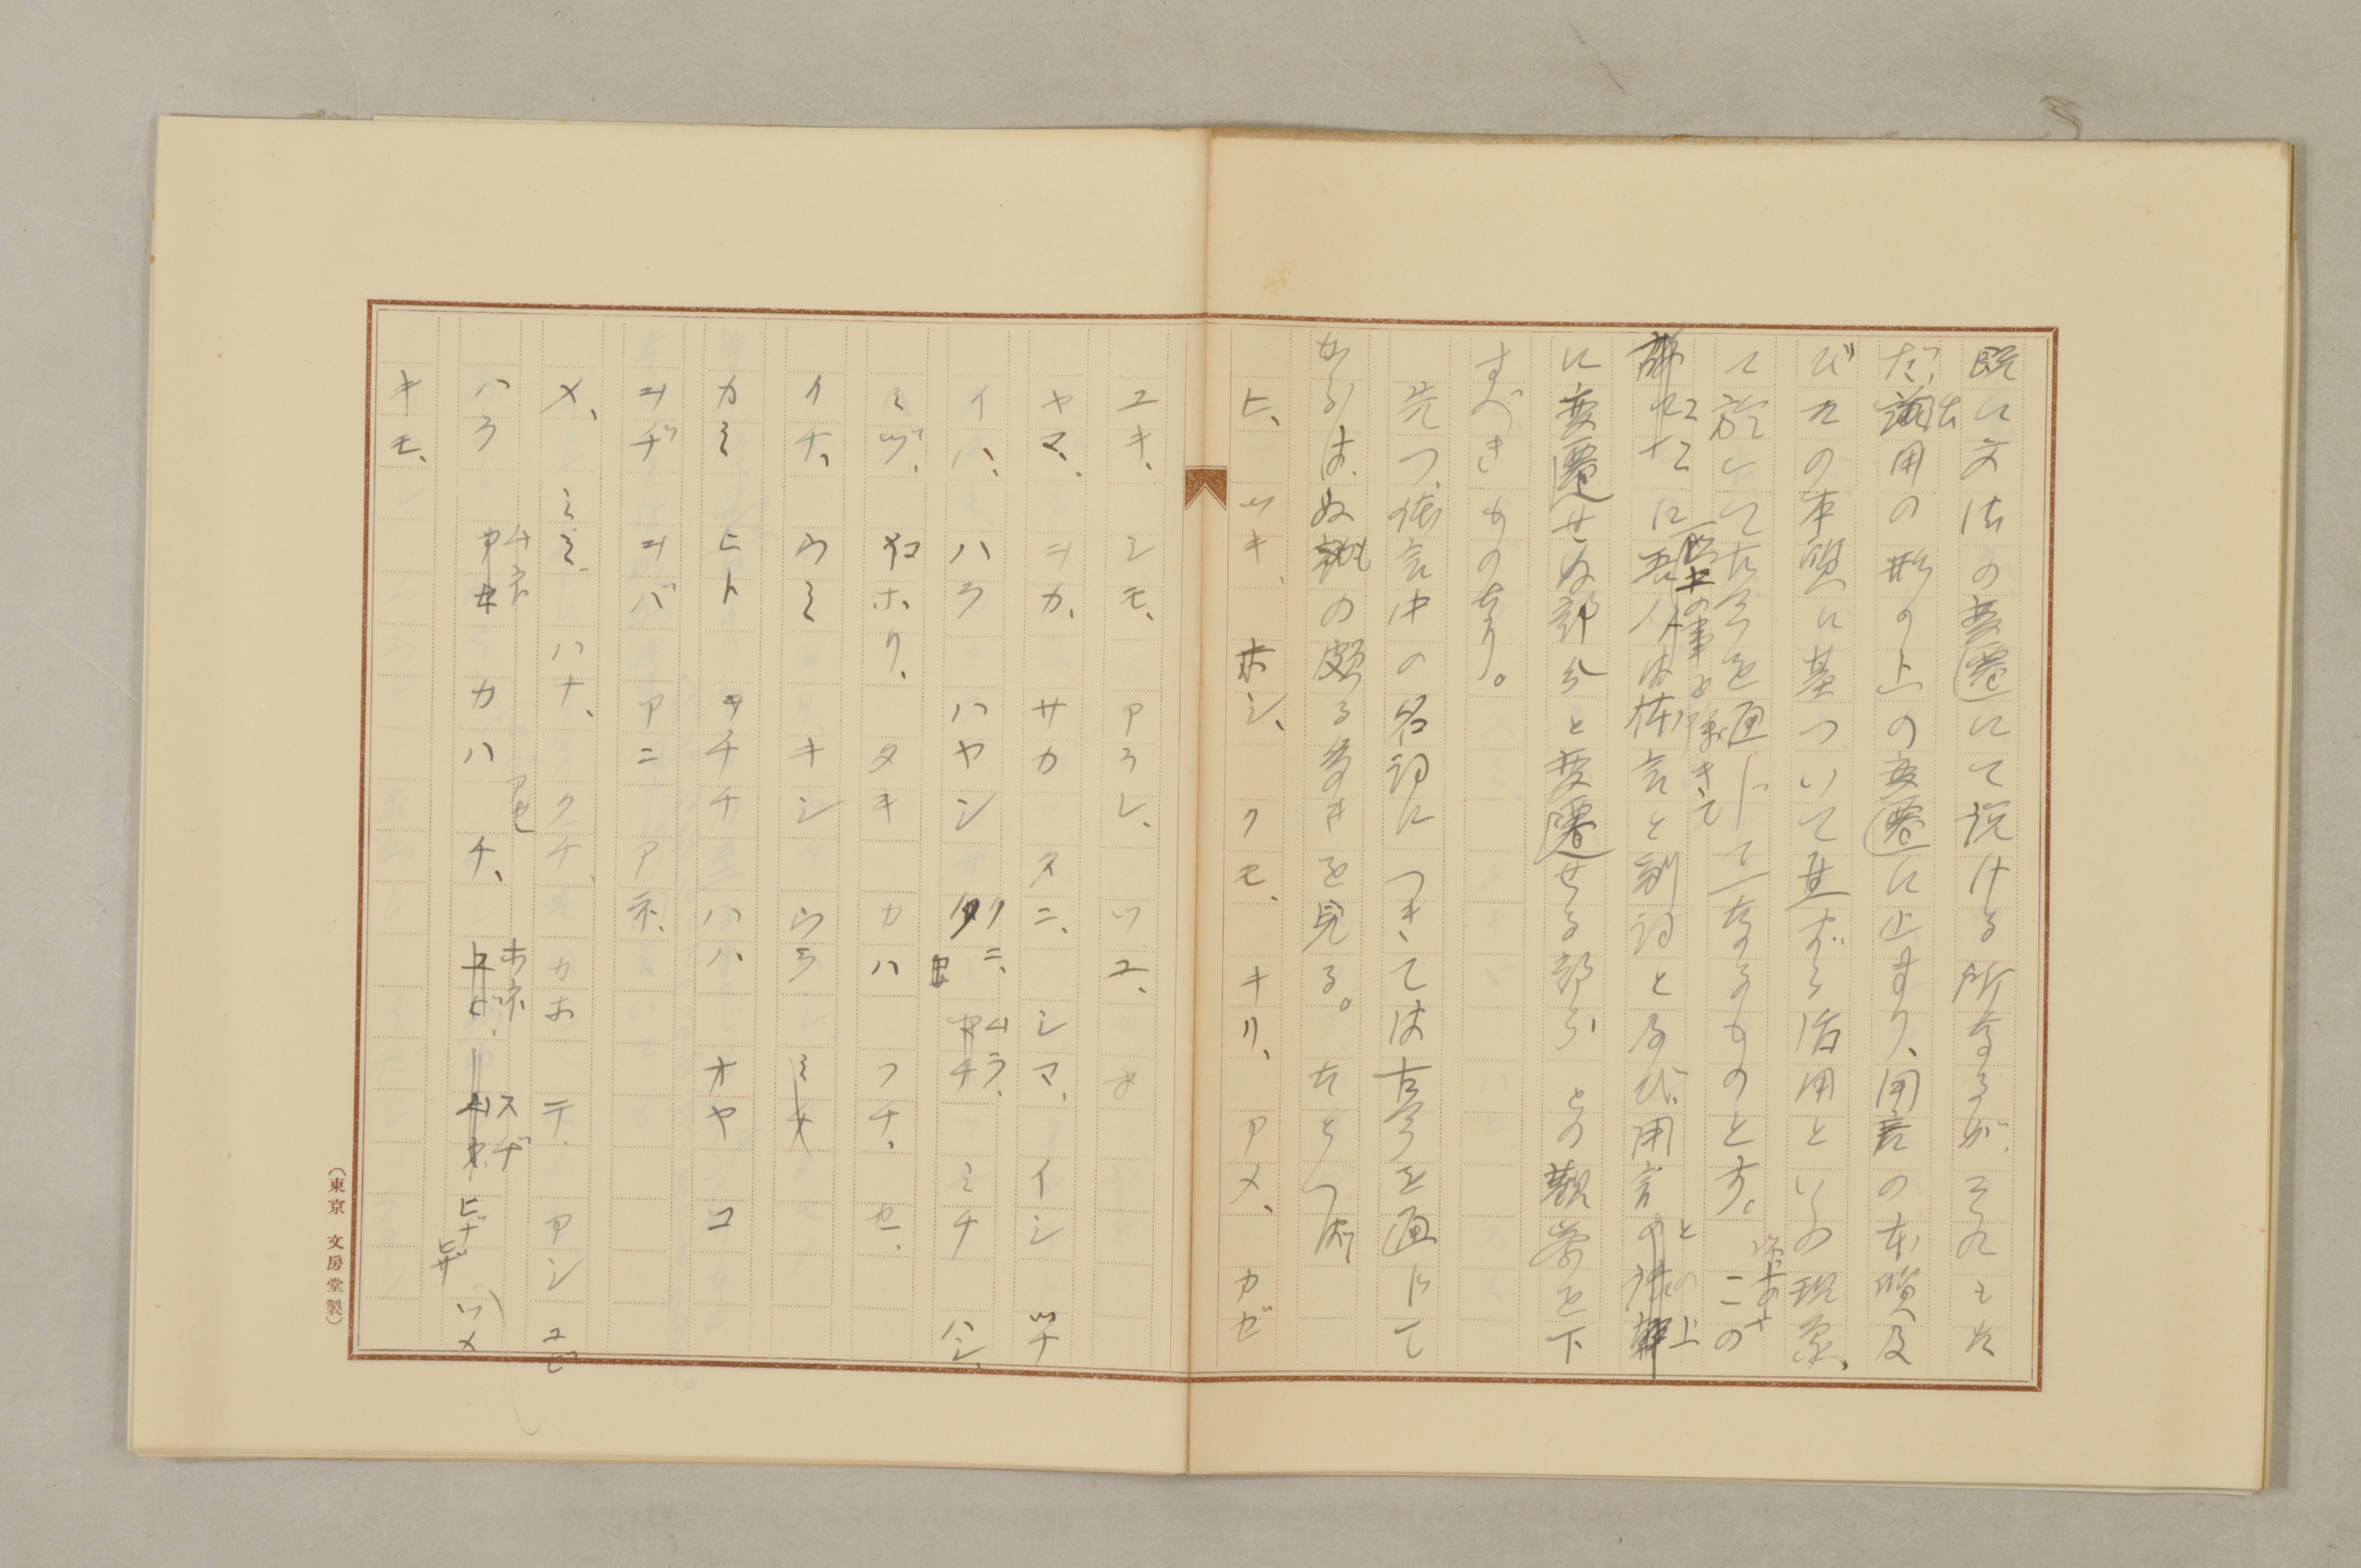 既に文法の変遷にて説ける所なるが、それもた
だ活用の形の上の変遷に止まり、用言の本質及
びその本質に基づいて生ずる活用といふ現象
に於いて古今を通じて一なるものとす。この
に吾人は体言と副詞と及び、用言との上
に変遷せぬ部分と変遷せる部分との観察を下
すべきものなり。
先づ、体言中の名詞につきては古今を通じて
かはらぬものの頗る多きを見る。たとへば、
ヒ、ツキ、ホシ、クモ、キリ、アメ、カゼ
ユキ、シモ、アラレ、ツユ、
ヤマ、ヲカ、サカ、タニ、シマ、イシ、ツチ
イハ、ハラ、ハヤシ、クニ、ムラ、ミチ、ハシ、
ミヅ、コホリ、タキ、カハ、フチ、セ、
イケ、ウミ、キシ、ウラ
カミ、ヒト、チチ、ハハ、オヤ、コ
ヲヂ、ヲバ、アニ、アネ、
メ、ミミ、ハナ、クチ、カホ、テ、アシ、ユビ
ハラ、ムネ、カハ、アセ、チ、ホネ、スヂ、ヒヂ、ヒザ、ツメ
キモ、
(東京 文房堂製)